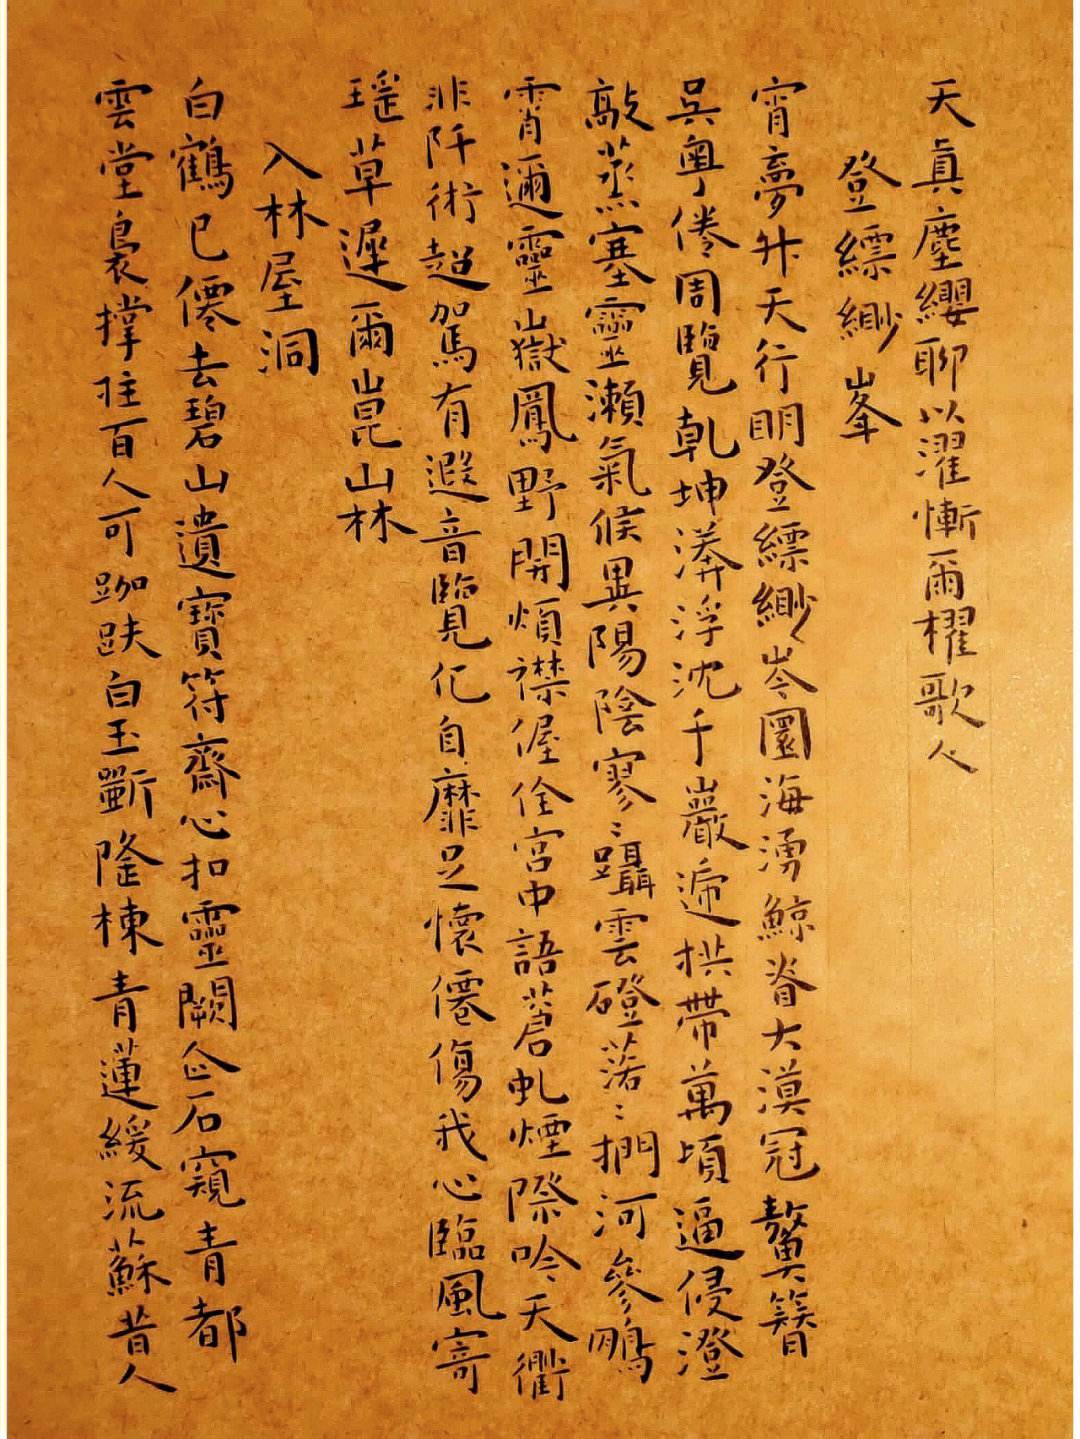 天真塵纓聊以濯慚爾櫂歌人
登縹緲峯
宵夢升天行明登縹緲岑圜海湧鯨脊大漠冠鼇簪
吳粵倦周覽乾坤漭浮沈千巖遞拱帶萬頃逼侵澄
歊蒸塞靈瀨氣候異陽陰寥〻躡雲磴落〻捫河參鵰
霄邇靈嶽鳳野開煩襟偓佺宮中語蒼虬煙際吟天衢
非阡術超駕有遐音覽化自靡足懷僊傷我心臨風寄
瑤草遲爾崑山林
入林屋洞
白鶴已僊去碧山遺寶符齋心扣靈闕企石窺青都
雲堂裊撐拄百人可跏趺白玉斲隆棟青蓮緩流蘇昔人